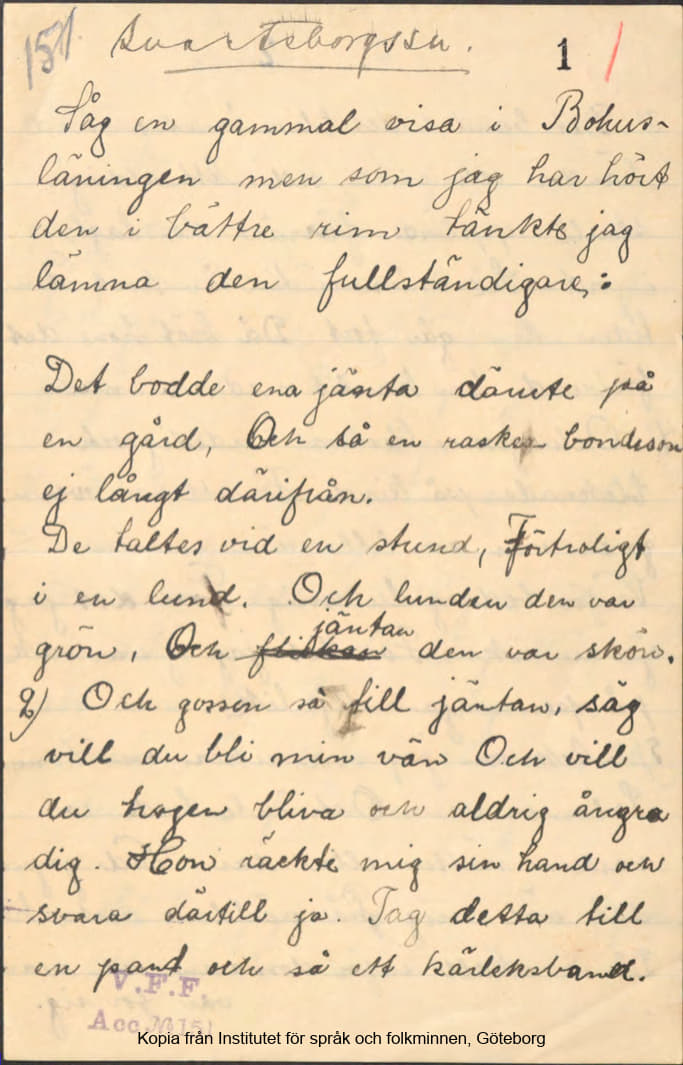 151. Svarteborgssn. 1
Såg en gammal visa i Bohus-
läningen men som jag har hört
den i bättre rim tänkte jag
lämna den fullständigare:
Det bodde ena jänta därute på
en gård, Och så en rasker bondeson
ej långt därifrån.
De taltes vid en stund, Förtroligt
i en lund. Och lunden den var
jäntan
grön, Och flickan den var skön.
2) Och gossen sa till jäntan, säg
vill du bli min vän Och vill
du trogen bliva och aldrig ångra
dig. Hon räckte mig sin hand och
svara därtill ja. Tag detta till
en pant och så ett kärleksband.
V.F.F
Acc. № 151
Kopia från Institutet för språk och folkminnen, Göteborg